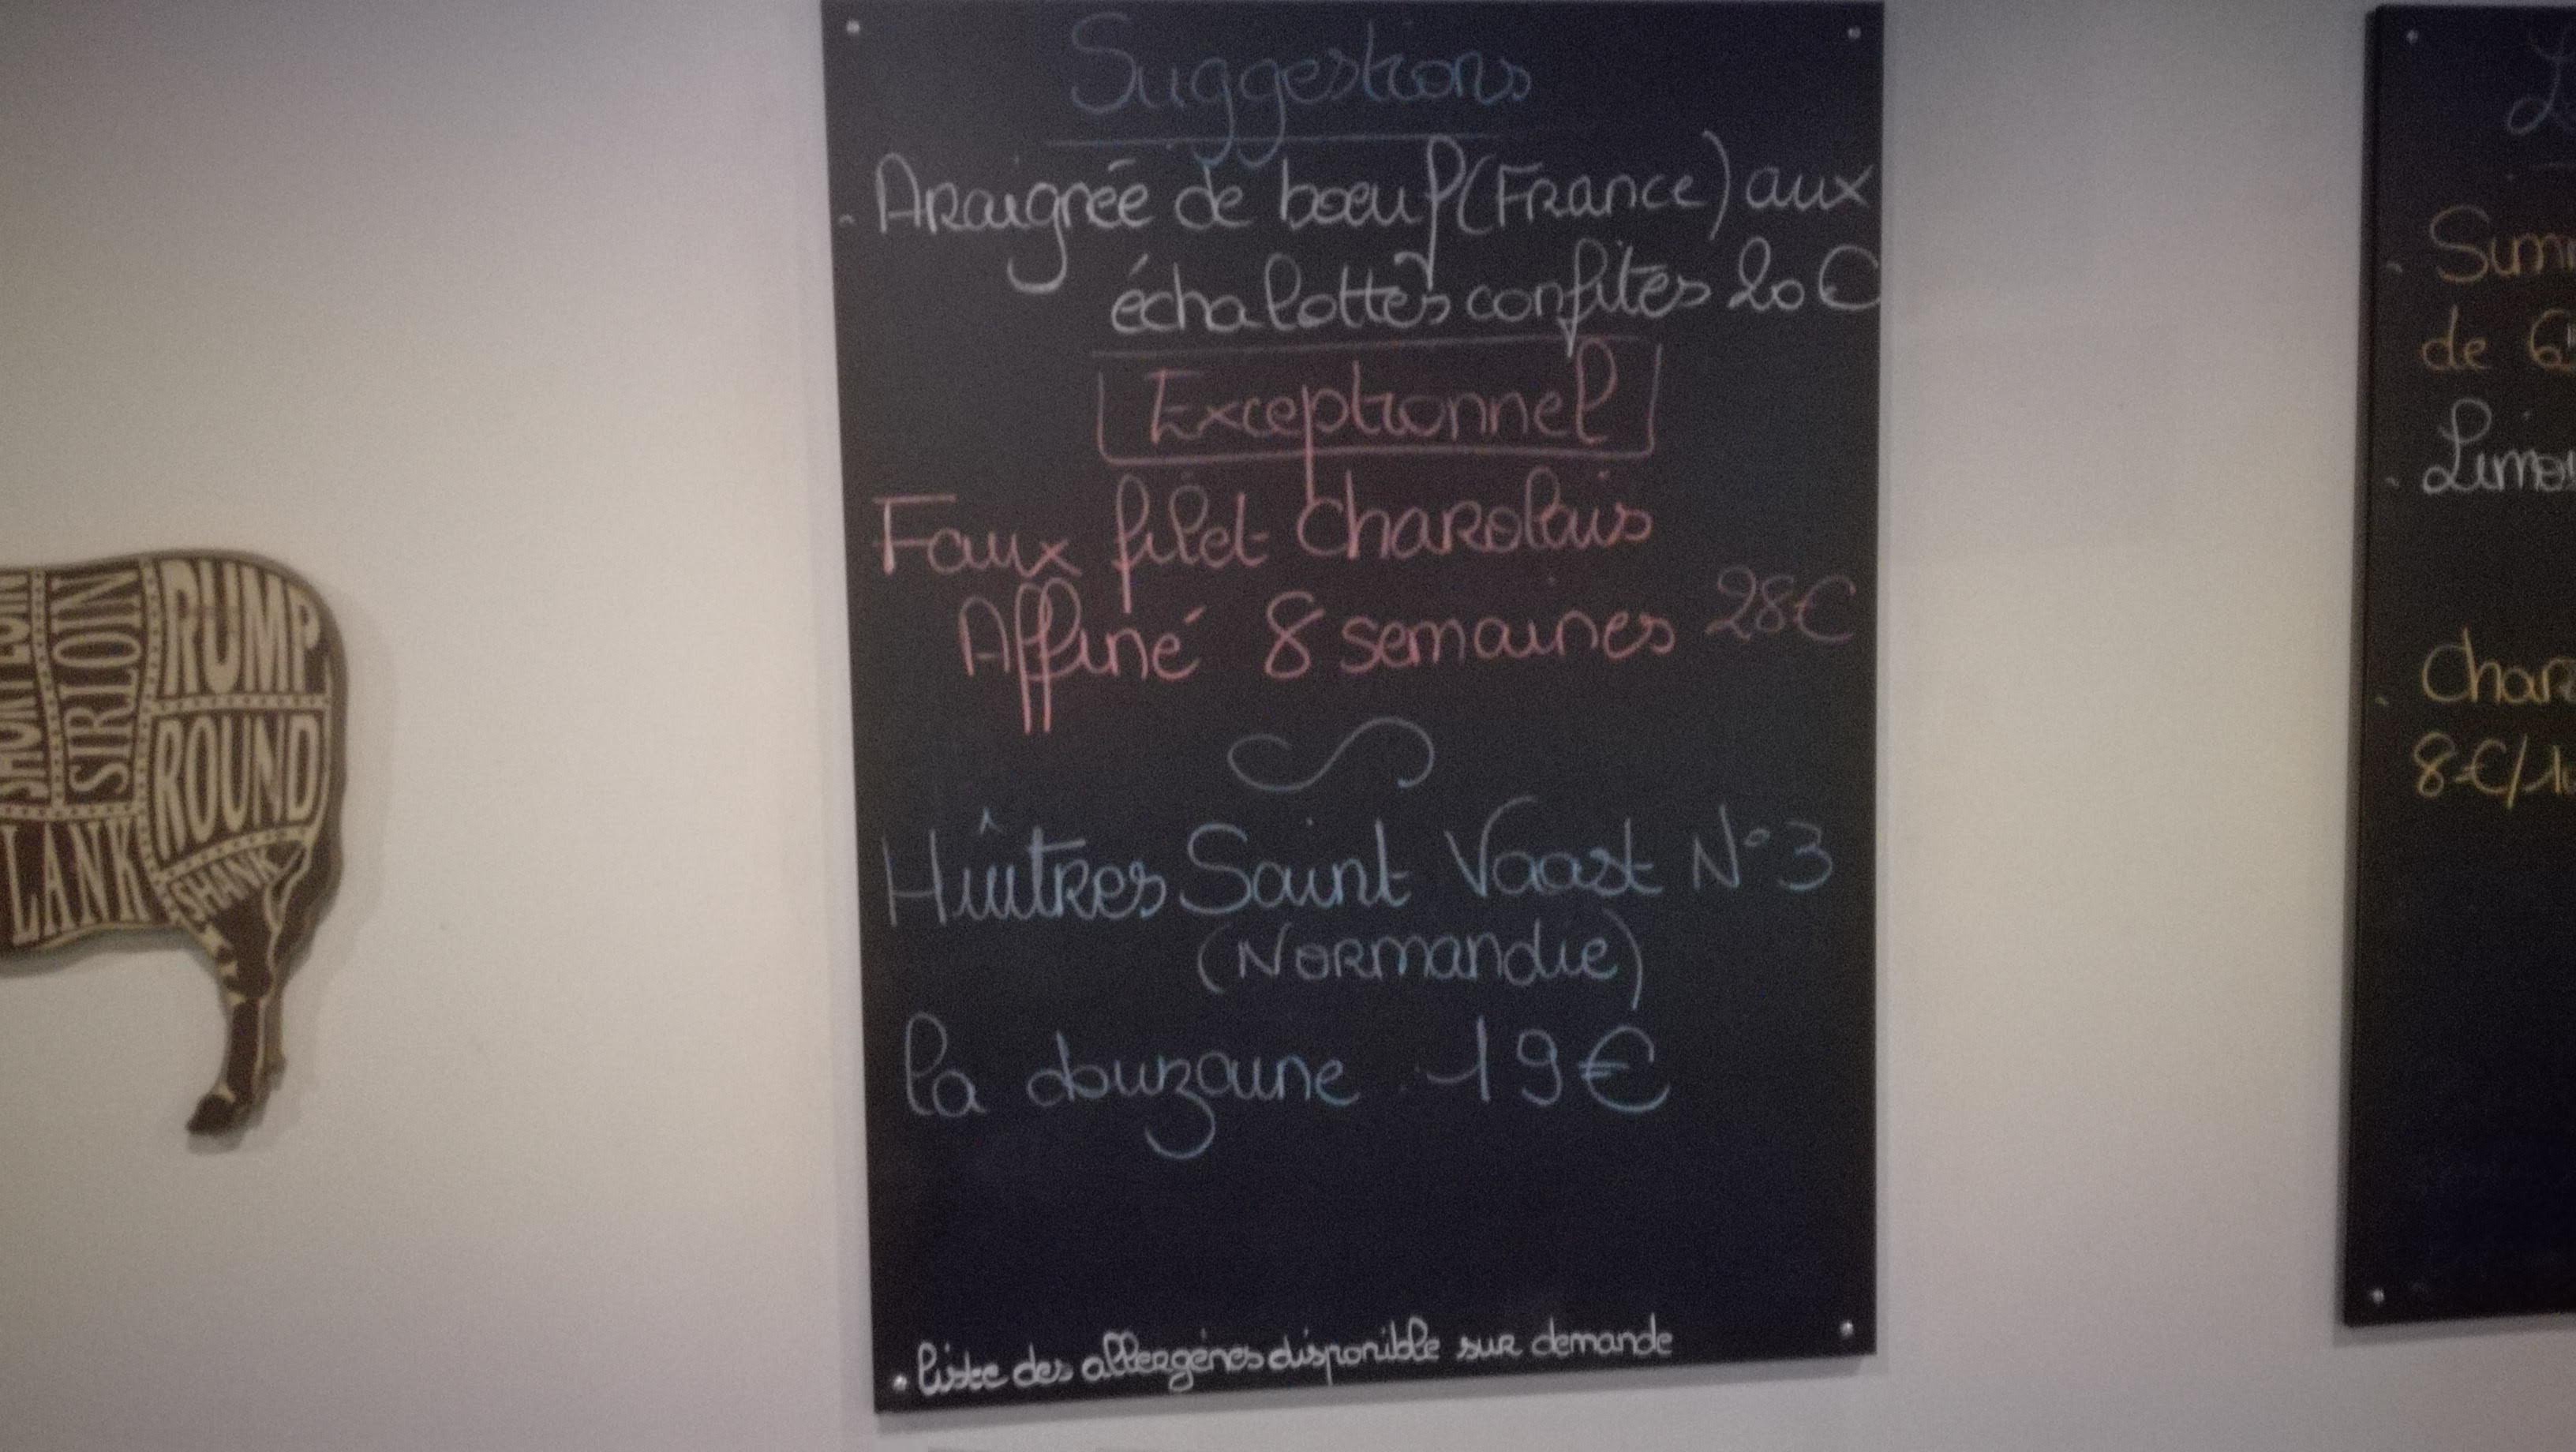 Suggestions
. Araignée de bœuf (France) aux
échalottes confites 20€
Exceptionnel
Faux filet Charolais
Affiné 8 semaines 28€
Huîtres Saint Vaast N°3
(Normandie)
la douzaine 19€
. liste des allergénes disponible sur demande
SIRLOIN
RUMP
ROUND
LANK
SHANK
. Simm
de
. Limou
. Char
8€/1